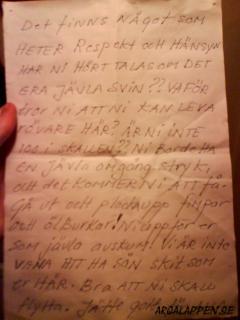 Det finns något som
HETER Respekt och HÄNSYN
HAR NI HÖRT TALAS OM DET
ERA JÄVLA SVIN?? VAFÖR
tror NI ATT NI KAN LEVA
RÖVARE HÄR? ÄR NI INTE
100 i SKALLEN?? Ni Borde HA
EN JÄVLA omgång stryk,
och det KOMMER NI ATT få-
GÅ ut och plocka upp fimpar
och ölBurkar! Ni uppför er
som jävla avskum! Vi ÄR inte
VANA ATT HA SÅN skit som
er HÄR. Bra ATT NI SKALL
flytta. Jätte gott
ARGALAPPEN.SE